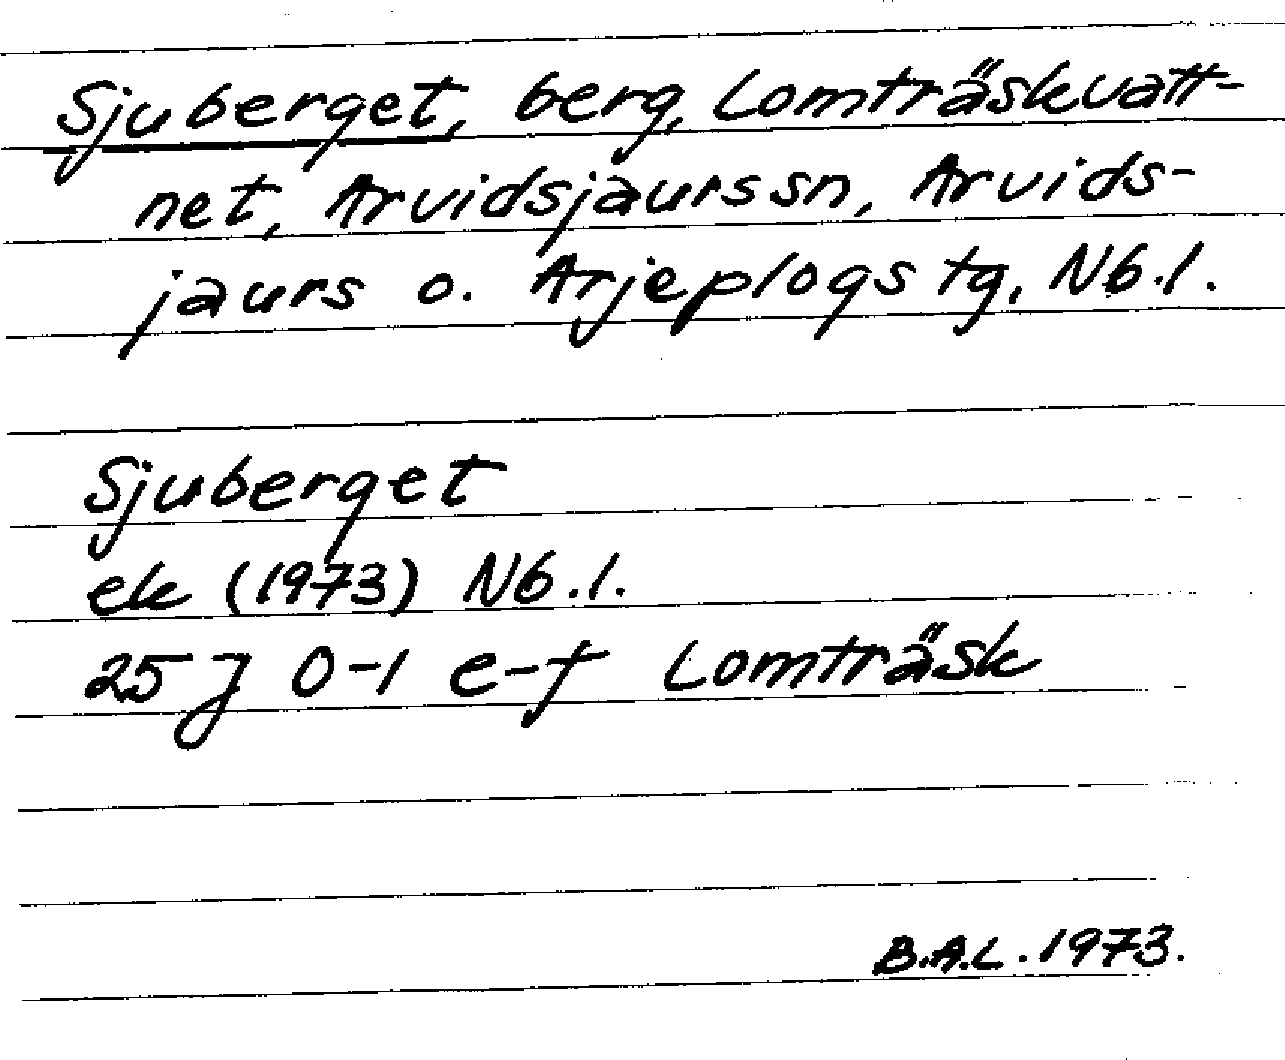 Sjuberget, berg, Lomträskvatt-
net, Arvidsjaurs sn, Arvids-
jaurs o. Arjeplogs tg, Nb.l.
Sjuberget
ek (1973) Nb.l.
25 J 0-1 e-f Lomträsk
B.A.L. 1973.